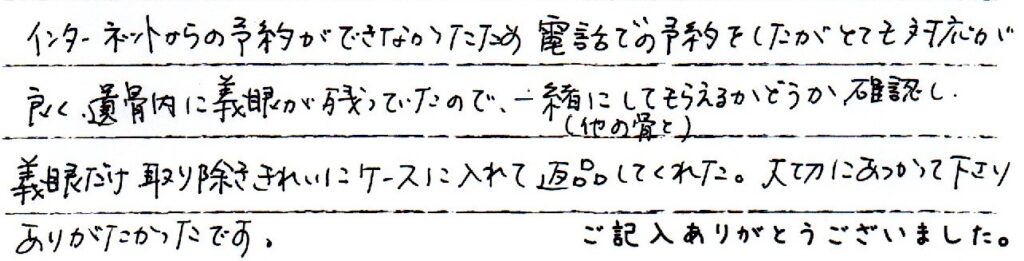 インターネットからの予約ができなかったため 電話での予約をしたがとても対応が
良く、遺骨内に義眼が残っていたので、一緒にしてもらえるかどうか確認し、
(他の骨と)
義眼だけ取り除ききれいにケースに入れて返品してくれた。大切にあつかって下さり
ありがたかったです。
ご記入ありがとうございました。